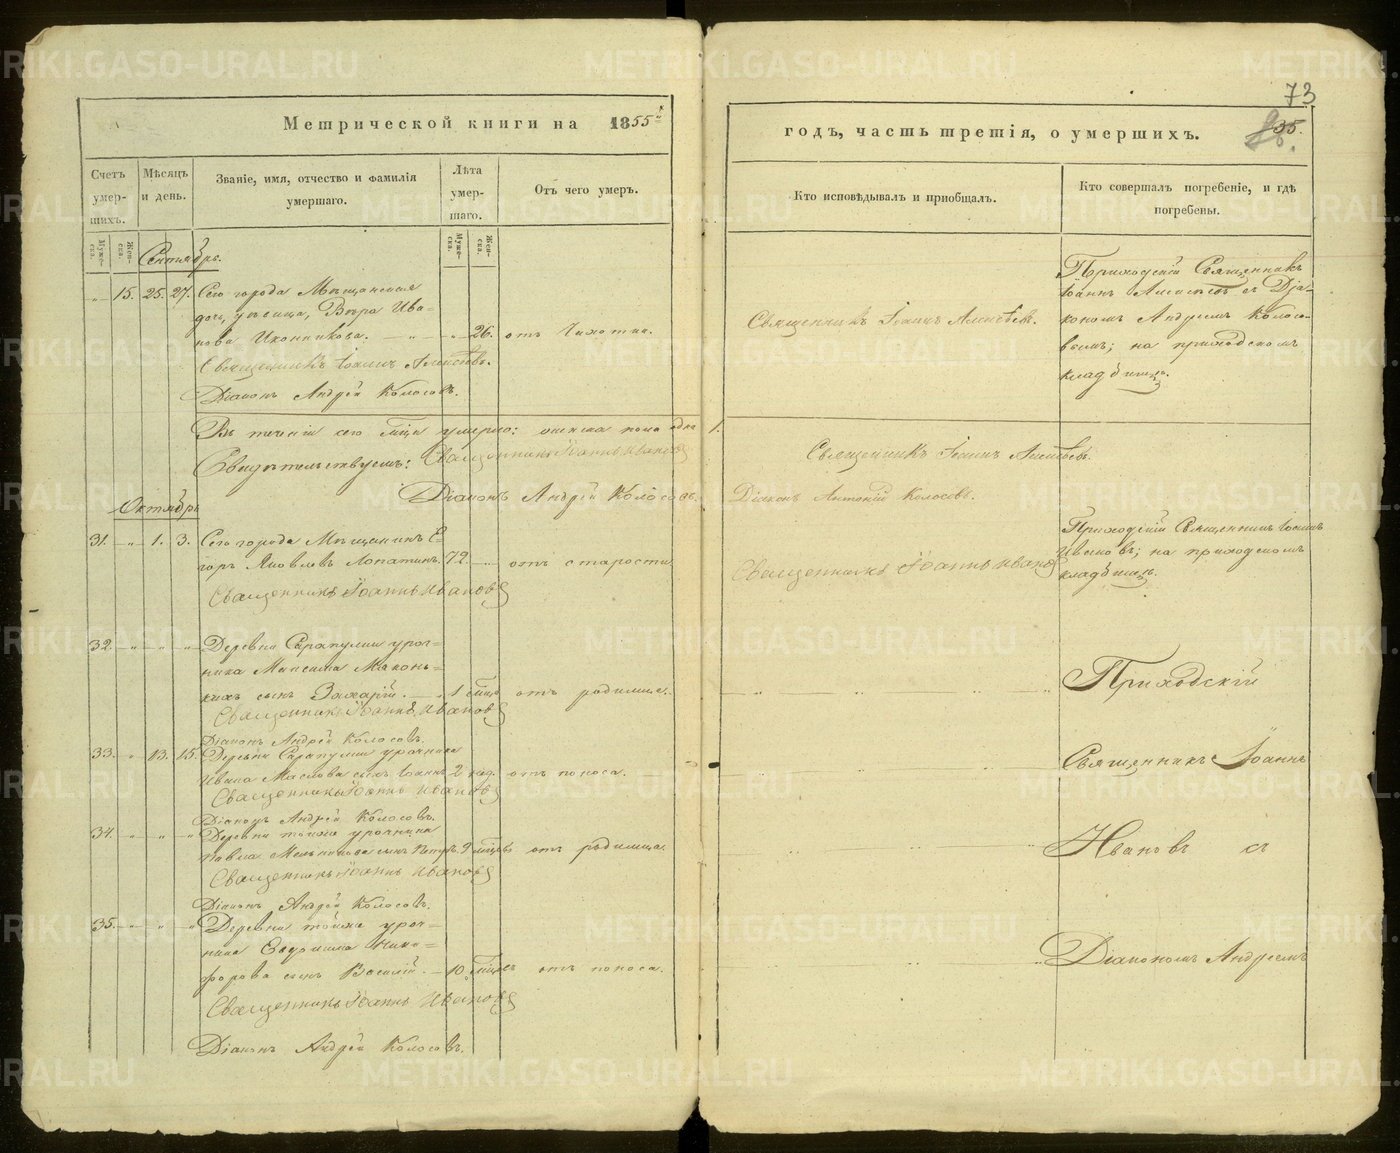 Метрической книги на 1855й
Счетъ умер- шихъ.
Мѣсяцъ и день.
Званіе, имя, отчество и фамилія умершаго.
Лѣта умер- шаго.
Отъ чего умеръ.
Муже- ска.
Жен- ска.
Муже- ска.
Жен- ска.
Сентябрь.
15. 25. 27. Сего города Мѣщанская
дочь, дѣвица, Вѣра Ива-
нова Иконникова. 26. отъ Чахотки.
Священникъ Іоаннъ Алексѣевъ.
Діаконъ Андрей Колосовъ.
Въ теченіи сего мѣсяца умерло: женска пола одна
Свидѣтельствуемъ: Священникъ Іоаннъ Ивановъ
Діаконъ Андрей Колосовъ.
Октябрь
31. 1. 3. Сего города Мѣщанинъ Е-
горъ Яковлевъ Лопатинъ. 72. отъ старости
Священникъ Іоаннъ Ивановъ
32. Деревни Сарапулки уроч-
ника Максима
кихъ сынъ Захарій. 1 мѣс. отъ родимца.
Священникъ Іоаннъ Ивановъ
Діаконъ Андрей Колосовъ.
33. 13. 15. Деревни Сарапулки урочника
Ивана Маслова сынъ Іоаннъ 2 нед. отъ поноса.
Священникъ Іоаннъ Ивановъ
Діаконъ Андрей Колосовъ.
34. Деревни тойже урочника
Павла Мельникова сынъ Петръ. 9 мѣсцъ отъ родимца.
Священникъ Іоаннъ Ивановъ
Діаконъ Андрей Колосовъ.
35. Деревни тойже уроч-
ника Евдокима Ники-
форова сынъ Василій. 10. мѣсцъ отъ поноса.
Священникъ Іоаннъ Ивановъ
Діаконъ Андрей Колосовъ.
73
годъ, часть третія, о умершихъ. 35.
Кто исповѣдывалъ и пріобщалъ.
Кто совершалъ погребеніе, и гдѣ погребены.
Священникъ Іоаннъ Алексѣевъ.
Приходскій Священникъ
Іоаннъ Алексѣевъ съ Діа-
кономъ Андреемъ Колосо-
вымъ; на приходскомъ
кладбищѣ.
1.
Священникъ Іоаннъ Алексѣевъ.
Діаконъ Антоній Колосовъ.
Священникъ Іоаннъ Ивановъ
Приходскій Священникъ Іоаннъ
Ивановъ; на приходскомъ
кладбищѣ.
Приходскій
Священникъ Іоаннъ
Ивановъ съ
Діакономъ Андреемъ
METRIKI.GASO-URAL.RU